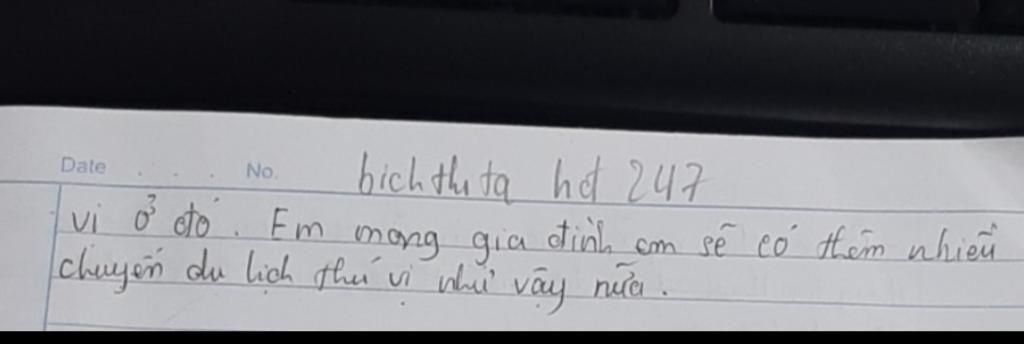 Date . . . No. bichthuta hd 247
vị ở đó. Em mong gia đình em sẽ có thêm nhiều
chuyến du lịch thú vị như vậy nữa.